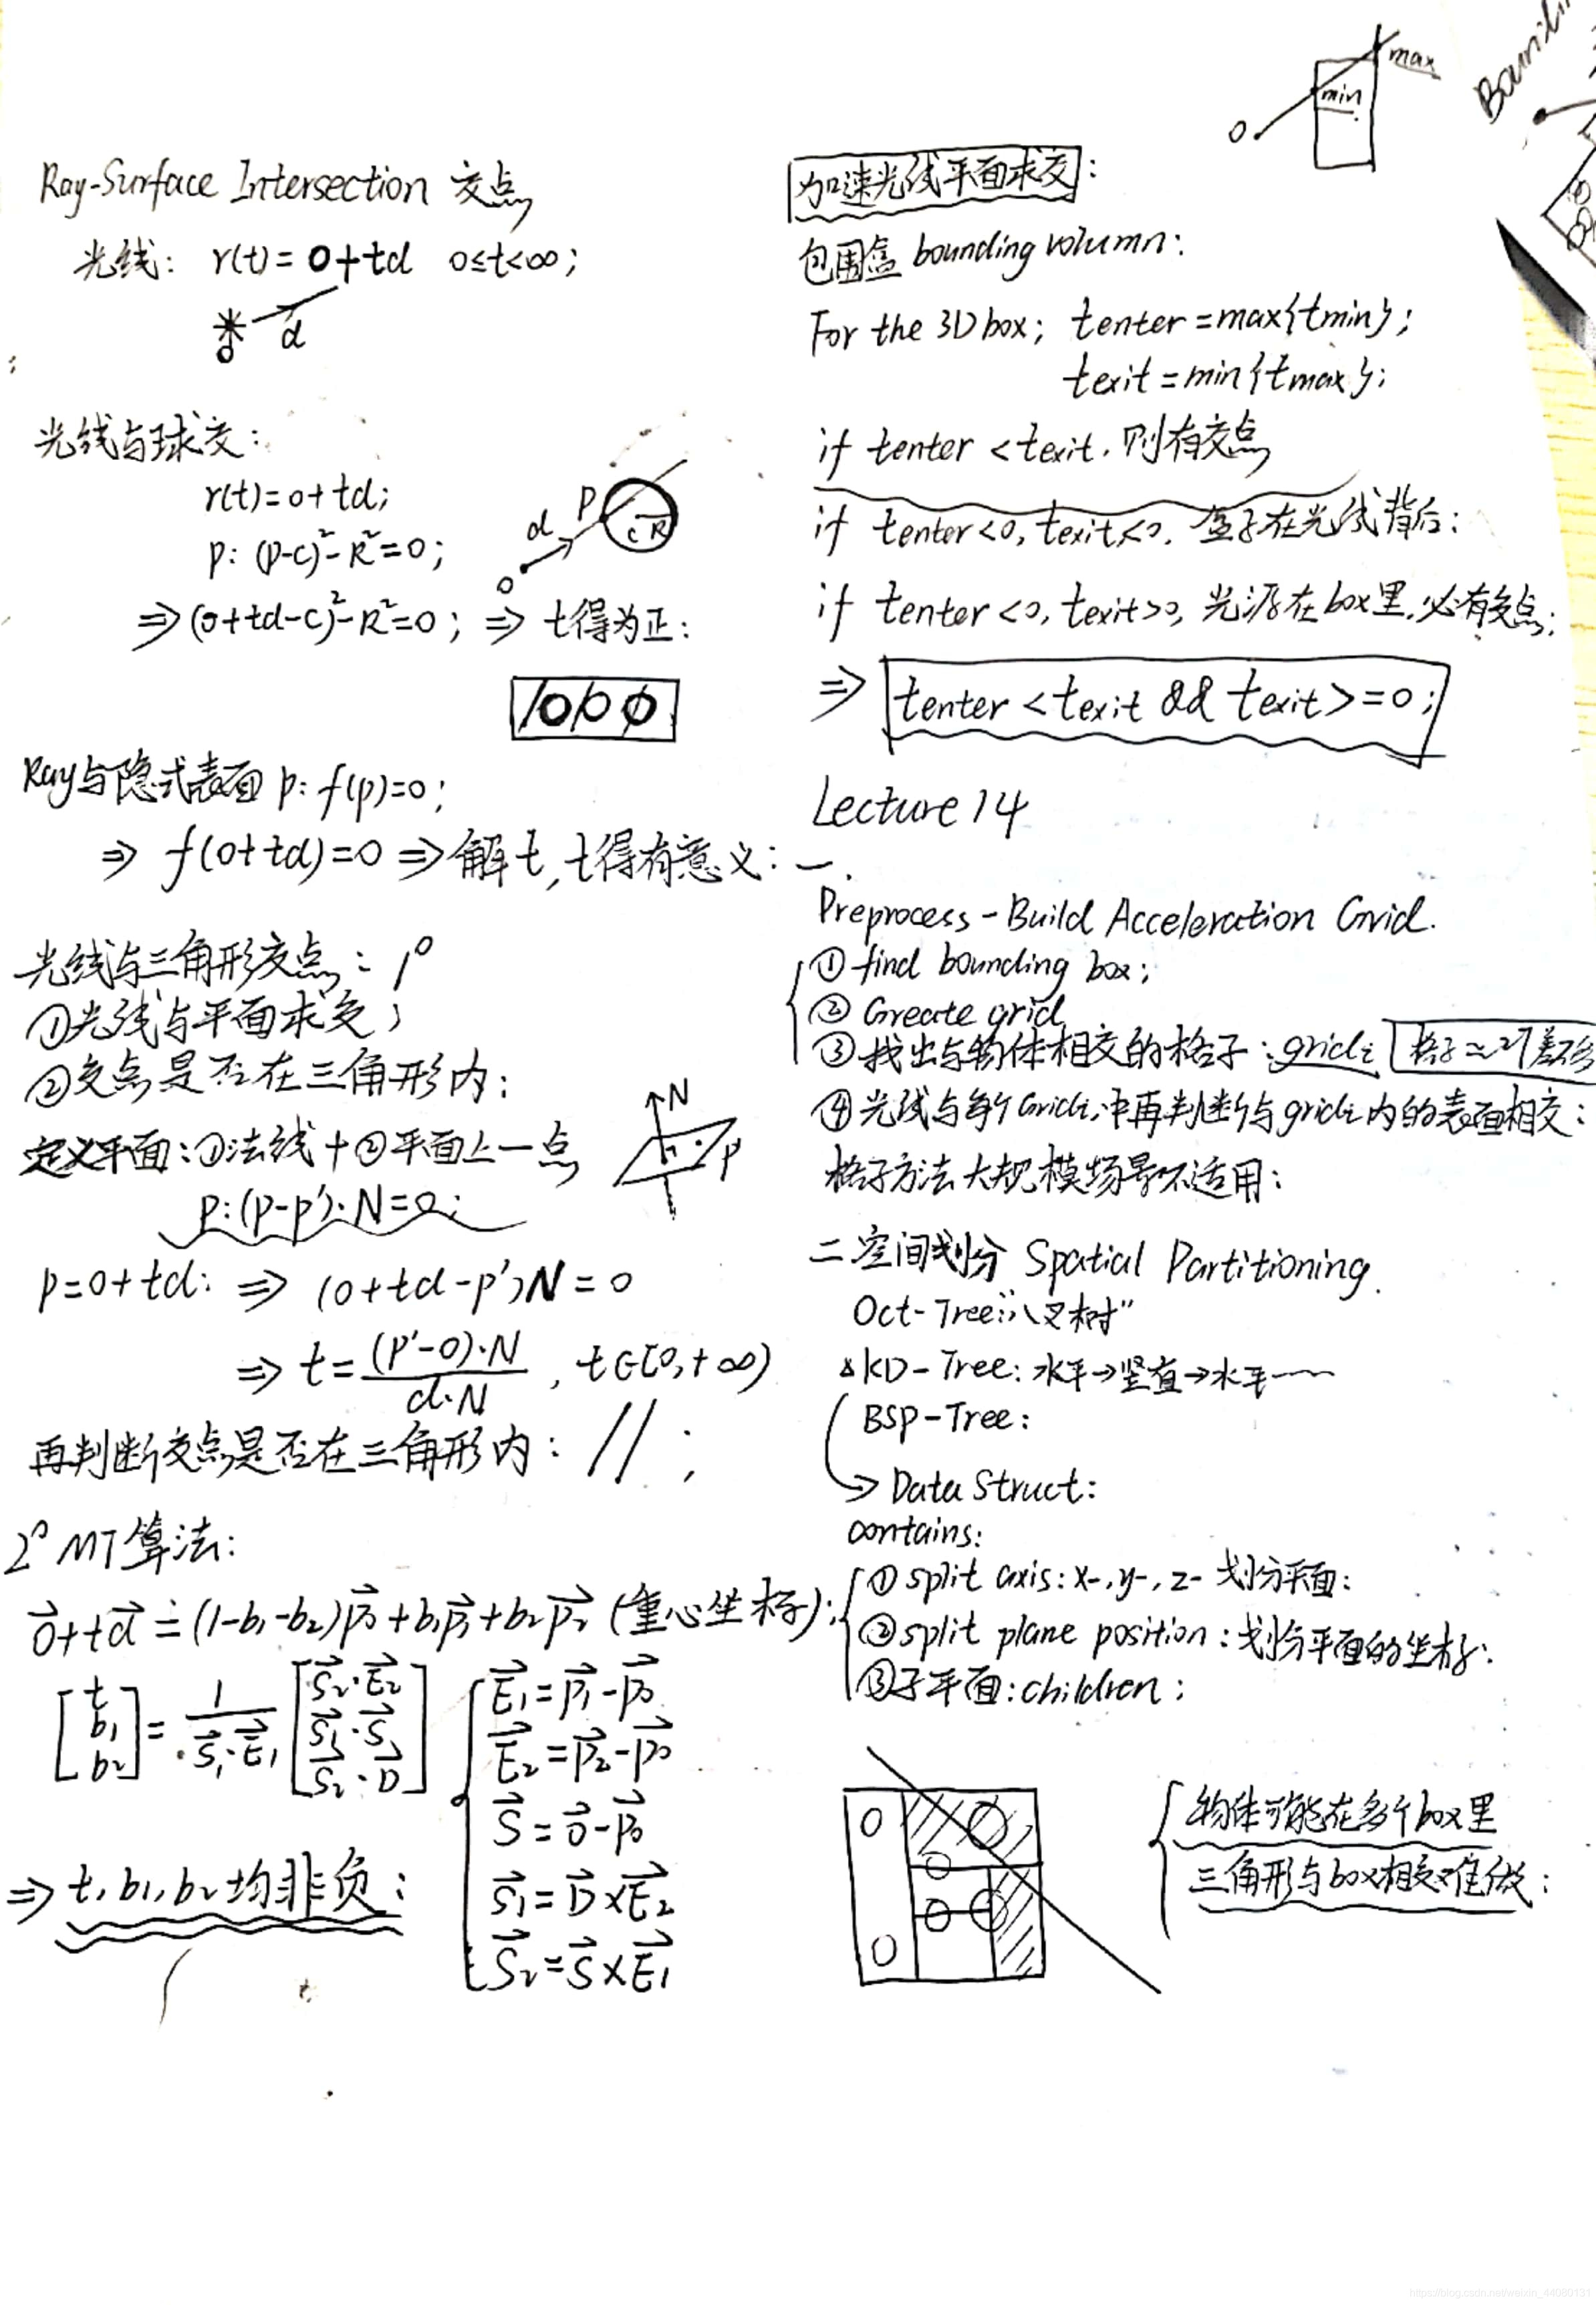 Ray-Surface Intersection 交点
光线: r(t) = o+td 0≤t<∞;
o d
光线与球交:
r(t)=o+td;
p: (p-c)²-R²=0;
⇒(o+td-c)²-R²=0; ⇒ t得为正:
o d P C R
Ray与隐式表面 p: f(p)=0;
⇒ f(o+td)=0 ⇒解t, t得有意义:
光线与三角形交点: 1°
①光线与平面求交;
②交点是否在三角形内:
定义平面:①法线+②平面上一点
N
P'
p:(p-p')·N=0;
p=o+td: ⇒ (o+td-p')N=0
⇒ t=(p'-o)·N / d·N , t∈[0,+∞)
再判断交点是否在三角形内: // ;
2° MT算法:
O⃗+td⃗ = (1-b₁-b₂)p⃗₀+b₁p⃗₁+b₂p⃗₂ (重心坐标);
[t b₁ b₂] = 1 / S⃗₁·E⃗₁ [S⃗₂·E⃗₂ S⃗₁·S⃗ S⃗₂·D⃗]
E⃗₁=p⃗₁-p⃗₀
E⃗₂=p⃗₂-p⃗₀
S⃗=o⃗-p⃗₀
S⃗₁=D⃗×E⃗₂
S⃗₂=S⃗×E⃗₁
⇒ t, b₁, b₂均非负:
o min max
加速光线平面求交:
包围盒 bounding volumn:
For the 3D box; tenter=max{tmin};
texit=min{tmax};
if tenter<texit, 则有交点
if tenter<0, texit<0, 盒子在光线背后:
if tenter<0, texit>0, 光源在box里,必有交点;
⇒ tenter<texit && texit>=0;
Lecture 14
一.
Preprocess-Build Acceleration Grid.
①find bounding box;
②Greate grid
③找出与物体相交的格子: gridi 格子≈27差不多
④光线与每个Gridi,中再判断与gridi内的表面相交:
格子方法大规模场景不适用:
二 空间划分 Spatial Partitioning.
Oct-Tree:"八叉树"
KD-Tree: 水平→竖直→水平……
BSP-Tree:
→ Data Struct:
contains:
①split axis: x-, y-, z- 划分平面:
②split plane position: 划分平面的坐标:
③子平面: children;
物体可能在多个box里
三角形与box相交难做:
https://blog.csdn.net/weixin_44080131